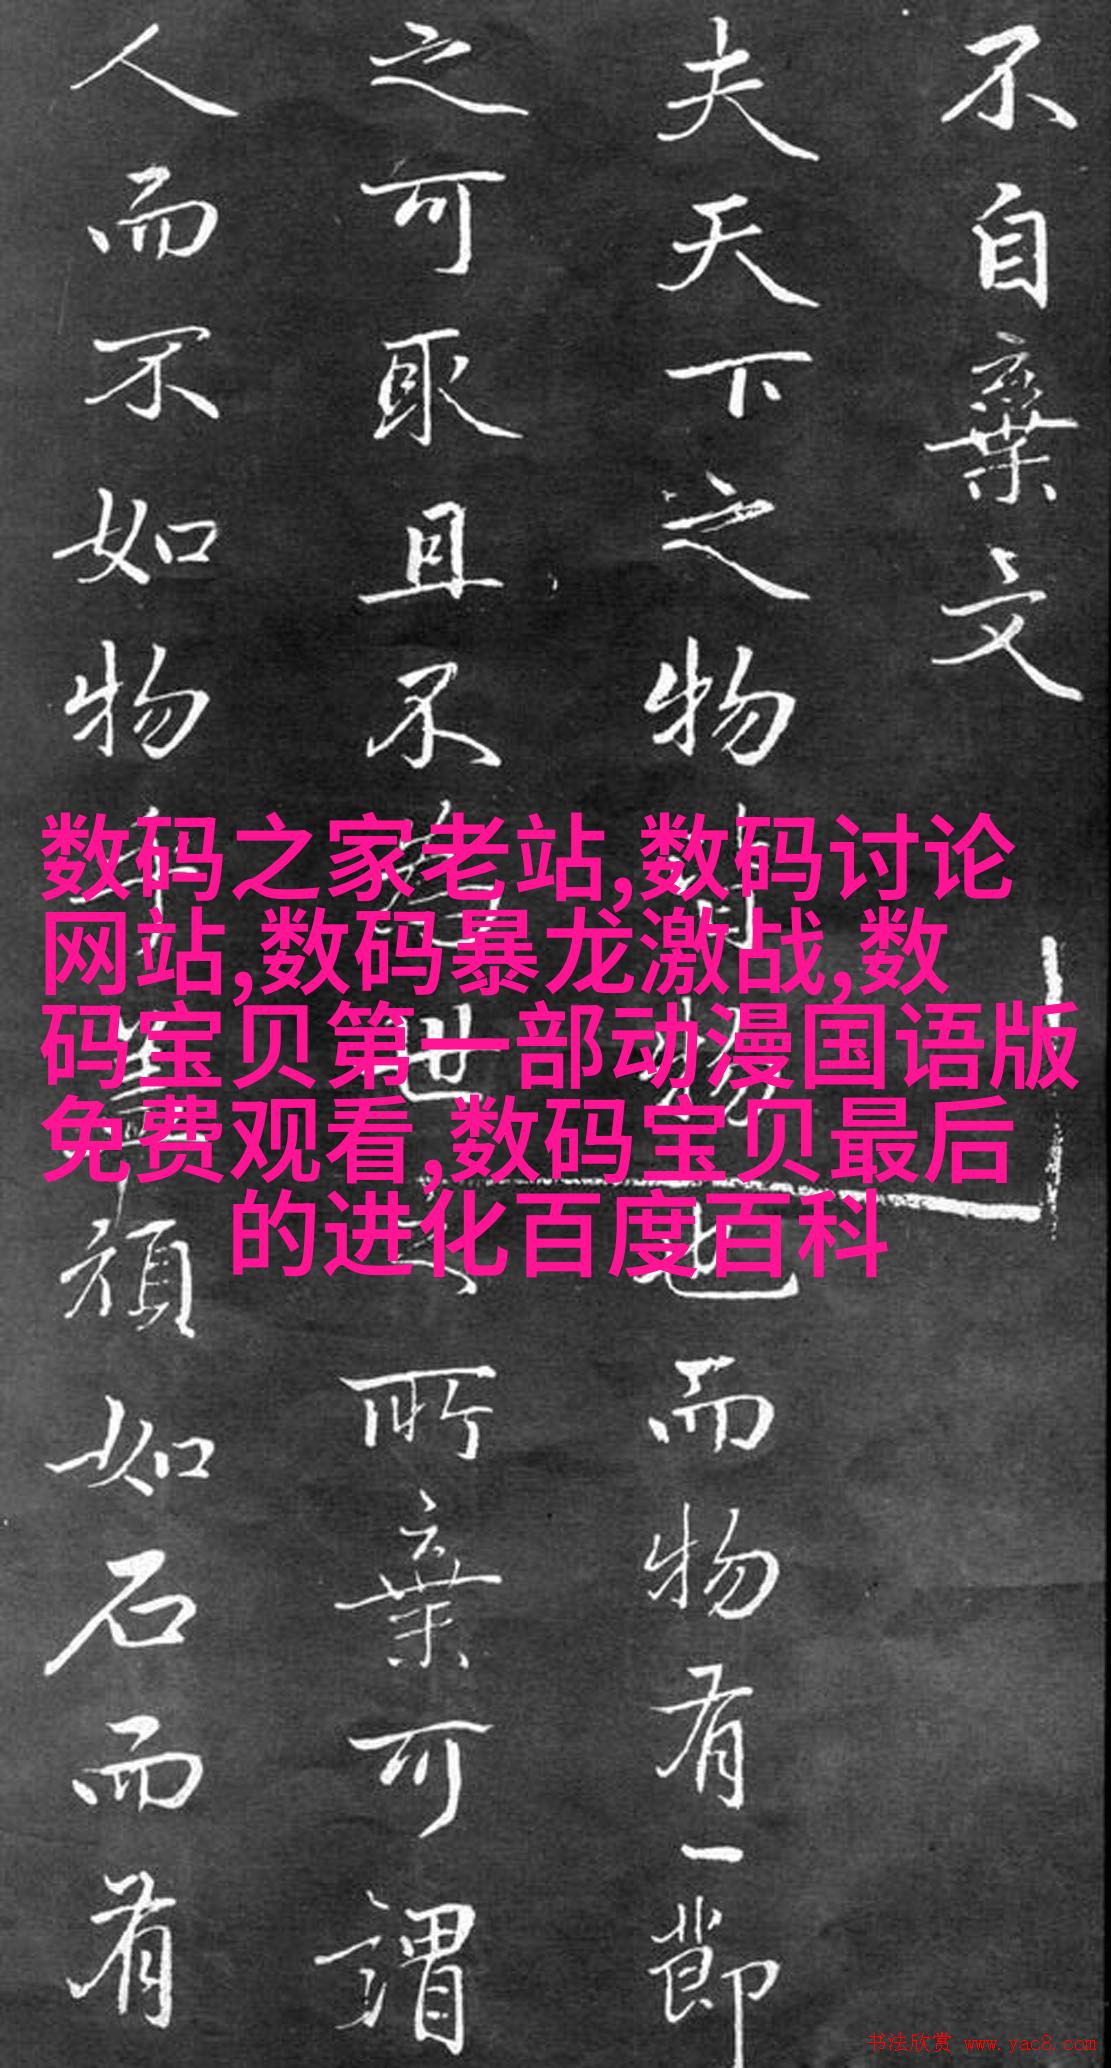 不自棄文
夫天下之物皆物也而物有一節
之可取且不為世之所棄可謂
人而不如物乎蓋頑如石而有
数码之家老站,数码讨论
网站,数码暴龙激战,数
码宝贝第一部动漫国语版
免费观看,数码宝贝最后
的进化百度百科
书法欣赏 www.yac8.com